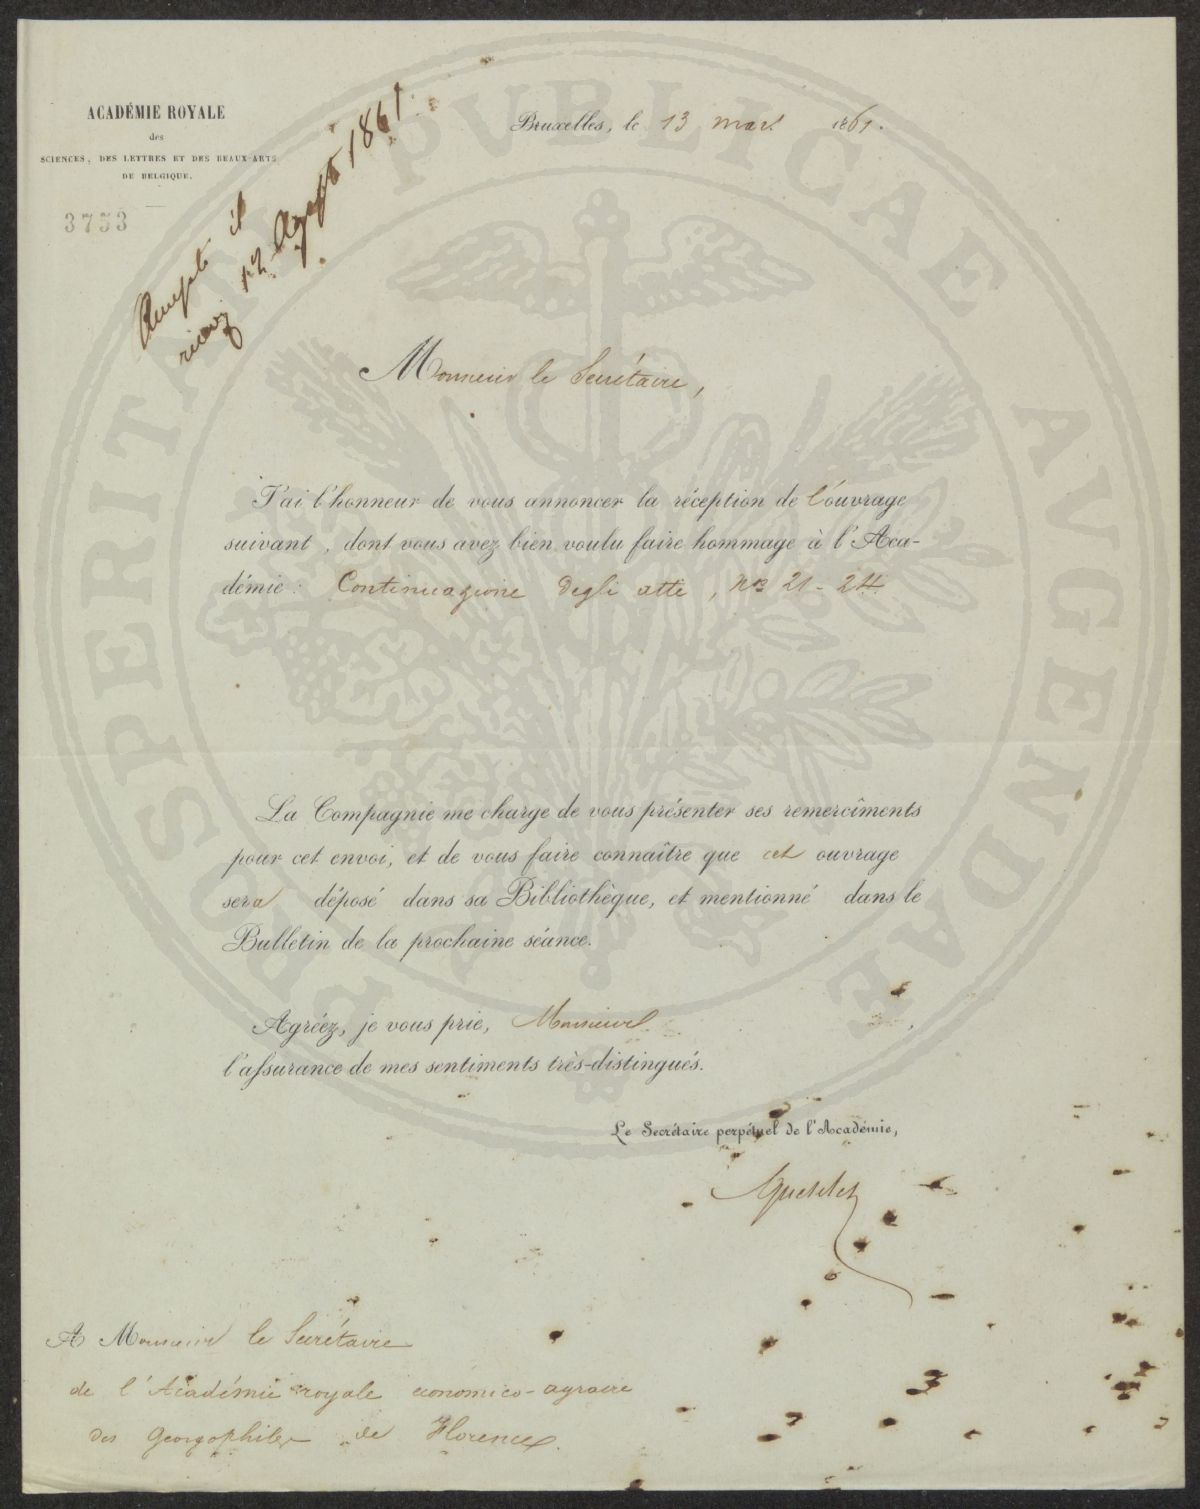 ACADÉMIE ROYALE
des
SCIENCES, DES LETTRES ET DES BEAUX-ARTS
DE BELGIQUE.
3753
Bruxelles, le 13 mars 1861.
il
12 Agosto 1861
Monsieur le Secrétaire,
J'ai l'honneur de vous annoncer la réception de l'ouvrage
suivant, dont vous avez bien voulu faire hommage à l'Aca-
démie: Continuazione degli atti, nos 21-24.
La Compagnie me charge de vous présenter ses remercîments
pour cet envoi, et de vous faire connaître que cet ouvrage
sera déposé dans sa Bibliothèque, et mentionné dans le
Bulletin de la prochaine séance.
Agréez, je vous prie, Monsieur,
l'assurance de mes sentiments très-distingués.
Le Secrétaire perpétuel de l'Académie,
Quetelet
A Monsieur le Secrétaire
de l'Académie royale economico-agraire
des Georgophiles de Florence.
PROSPERITATI PVBLICAE AVGENDAE